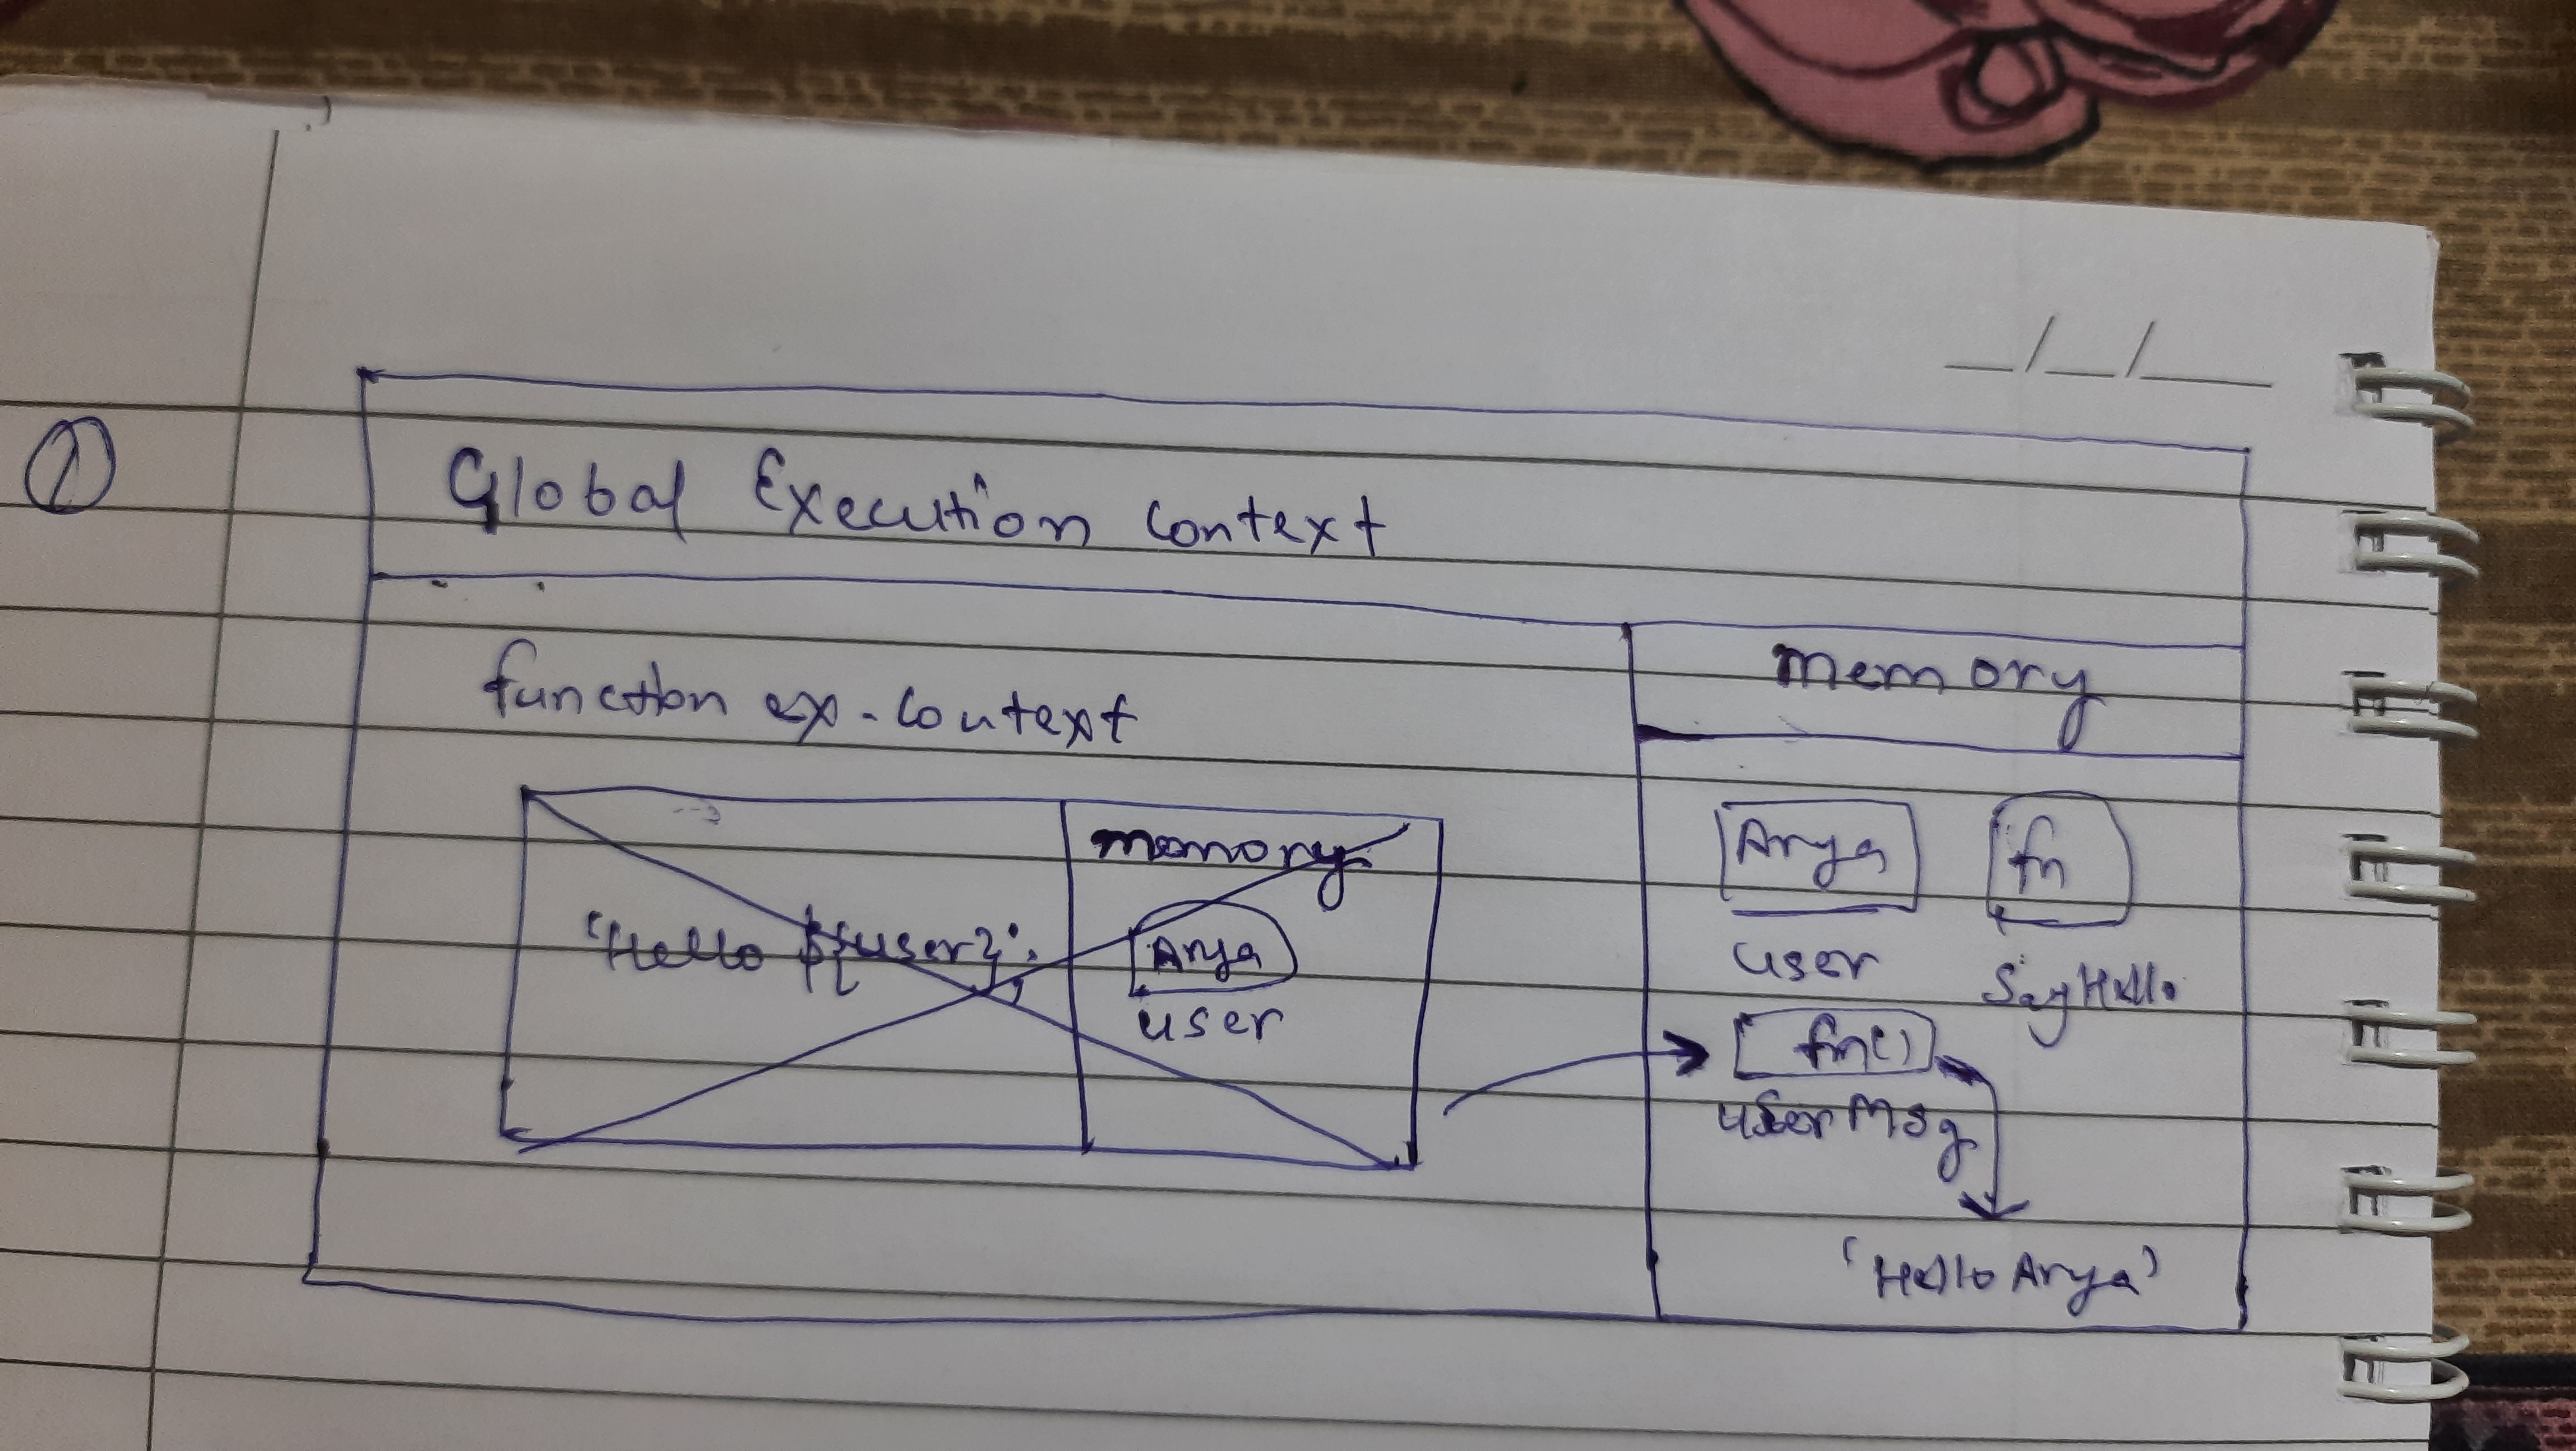 ①
Global Execution Context
function ex. context
memory
"Hello ${user}".
Arya
user
memory
Arya
fn
user
SayHello
fn()
userMsg
"Hello Arya"